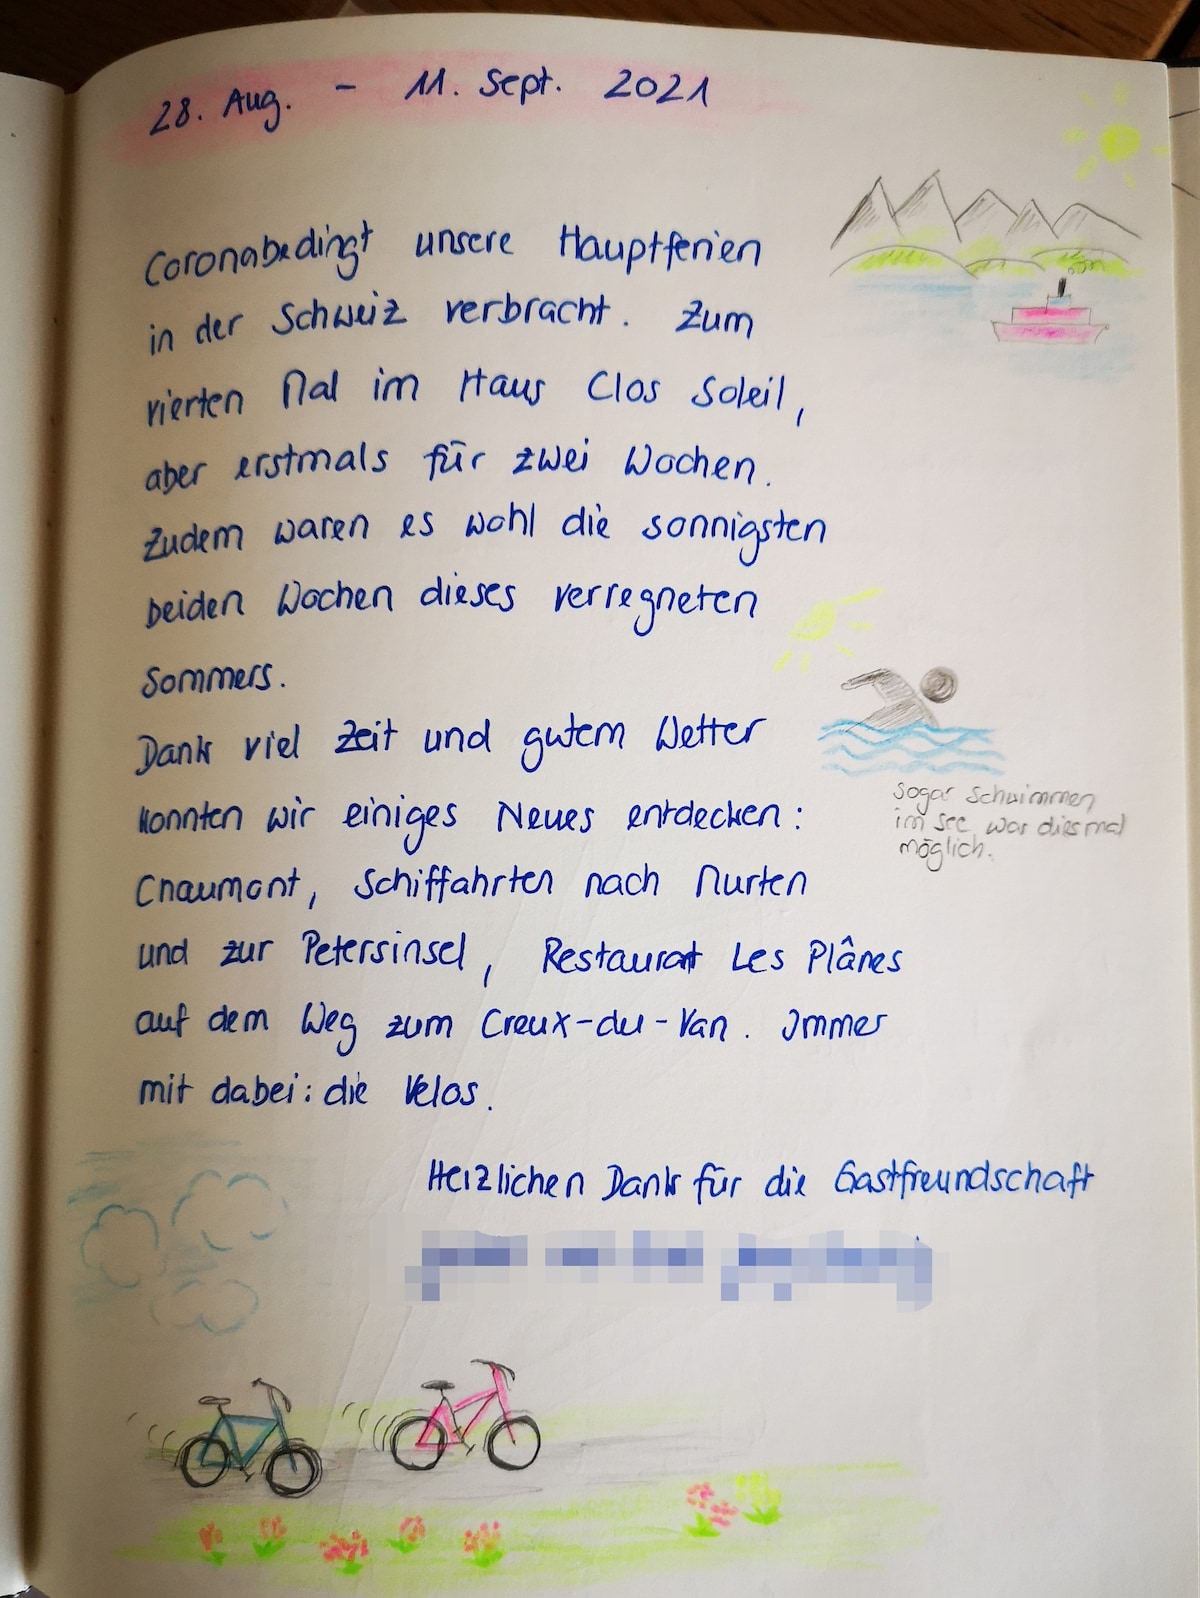 28. Aug. - 11. Sept. 2021
Coronabedingt unsere Hauptferien
in der Schweiz verbracht. Zum
vierten Mal im Haus Clos Soleil,
aber erstmals für zwei Wochen.
Zudem waren es wohl die sonnigsten
beiden Wochen dieses verregneten
Sommers.
Dank viel Zeit und gutem Wetter
konnten wir einiges Neues entdecken:
Chaumont, Schiffahrten nach Murten
und zur Petersinsel, Restaurant Les Plânes
auf dem Weg zum Creux-du-Van. Immer
mit dabei: die Velos.
sogar Schwimmen
im See war diesmal
möglich.
Herzlichen Dank für die Gastfreundschaft